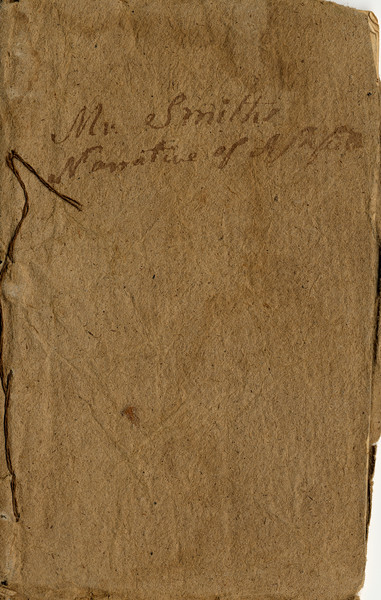 Mr. Smiths
Narrative of